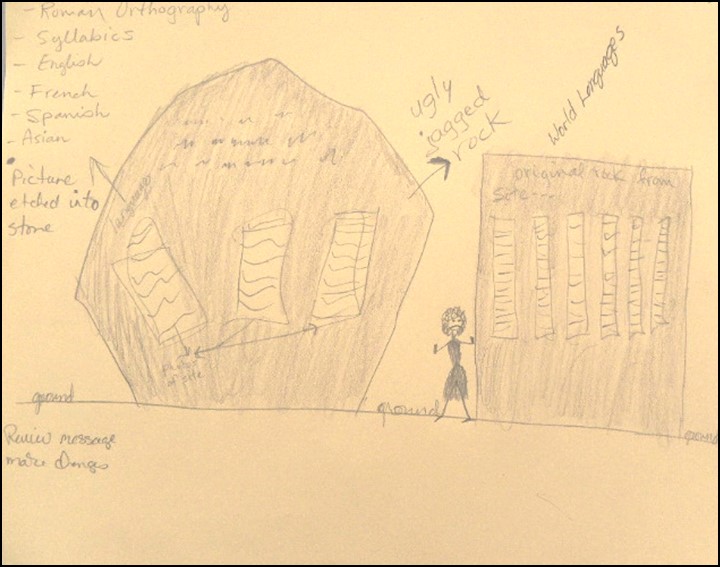 - Roman Orthography
- Syllabics
- English
- French
- Spanish
- Asian
• Picture
etched into
stone
languages
ugly
jagged
rock
World Languages
original rock from
site---
ground
ground
ground
Review message
make changes